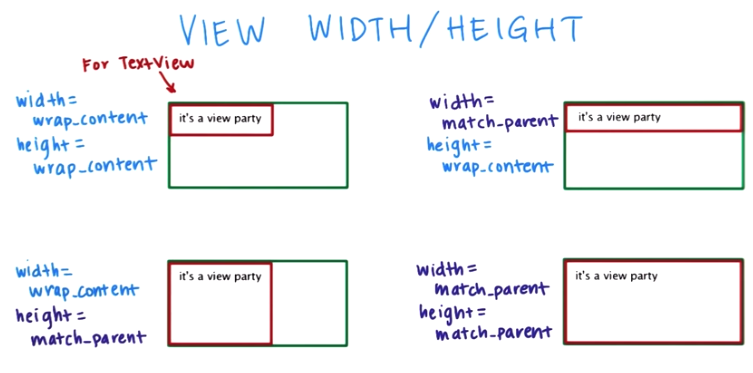 VIEW WIDTH/HEIGHT
For TextView
width=
wrap_content
height=
wrap_content
it's a view party
width=
match_parent
height=
wrap_content
it's a view party
width=
wrap_content
height=
match_parent
it's a view party
width=
match_parent
height=
match_parent
it's a view party